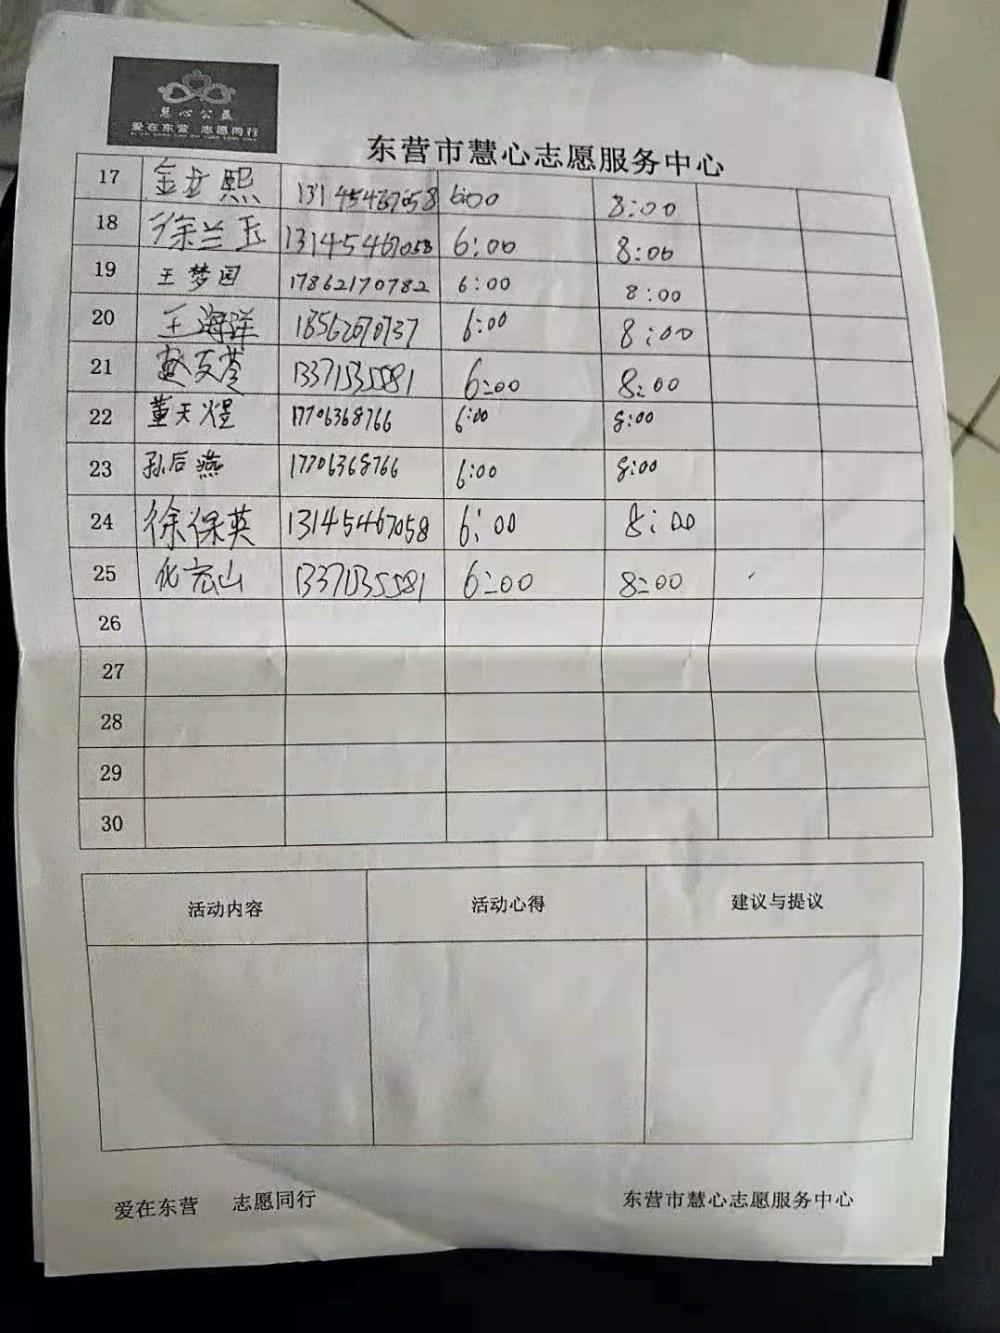 慧心公益
爱在东营 志愿同行
东营市慧心志愿服务中心
17 金 熙 13145467058 6:00 8:00
18 徐兰玉 13145467058 6:00 8:00
19 王梦园 17862170782 6:00 8:00
20 王海洋 18562070737 6:00 8:00
21 赵友苓 13371535581 6:00 8:00
22 董天煜 17706368766 6:00 8:00
23 孙后燕 17706368766 6:00 8:00
24 徐保英 13145467058 6:00 8:00
25 化宏山 13371535581 6:00 8:00
26
27
28
29
30
活动内容 活动心得 建议与提议
爱在东营 志愿同行 东营市慧心志愿服务中心